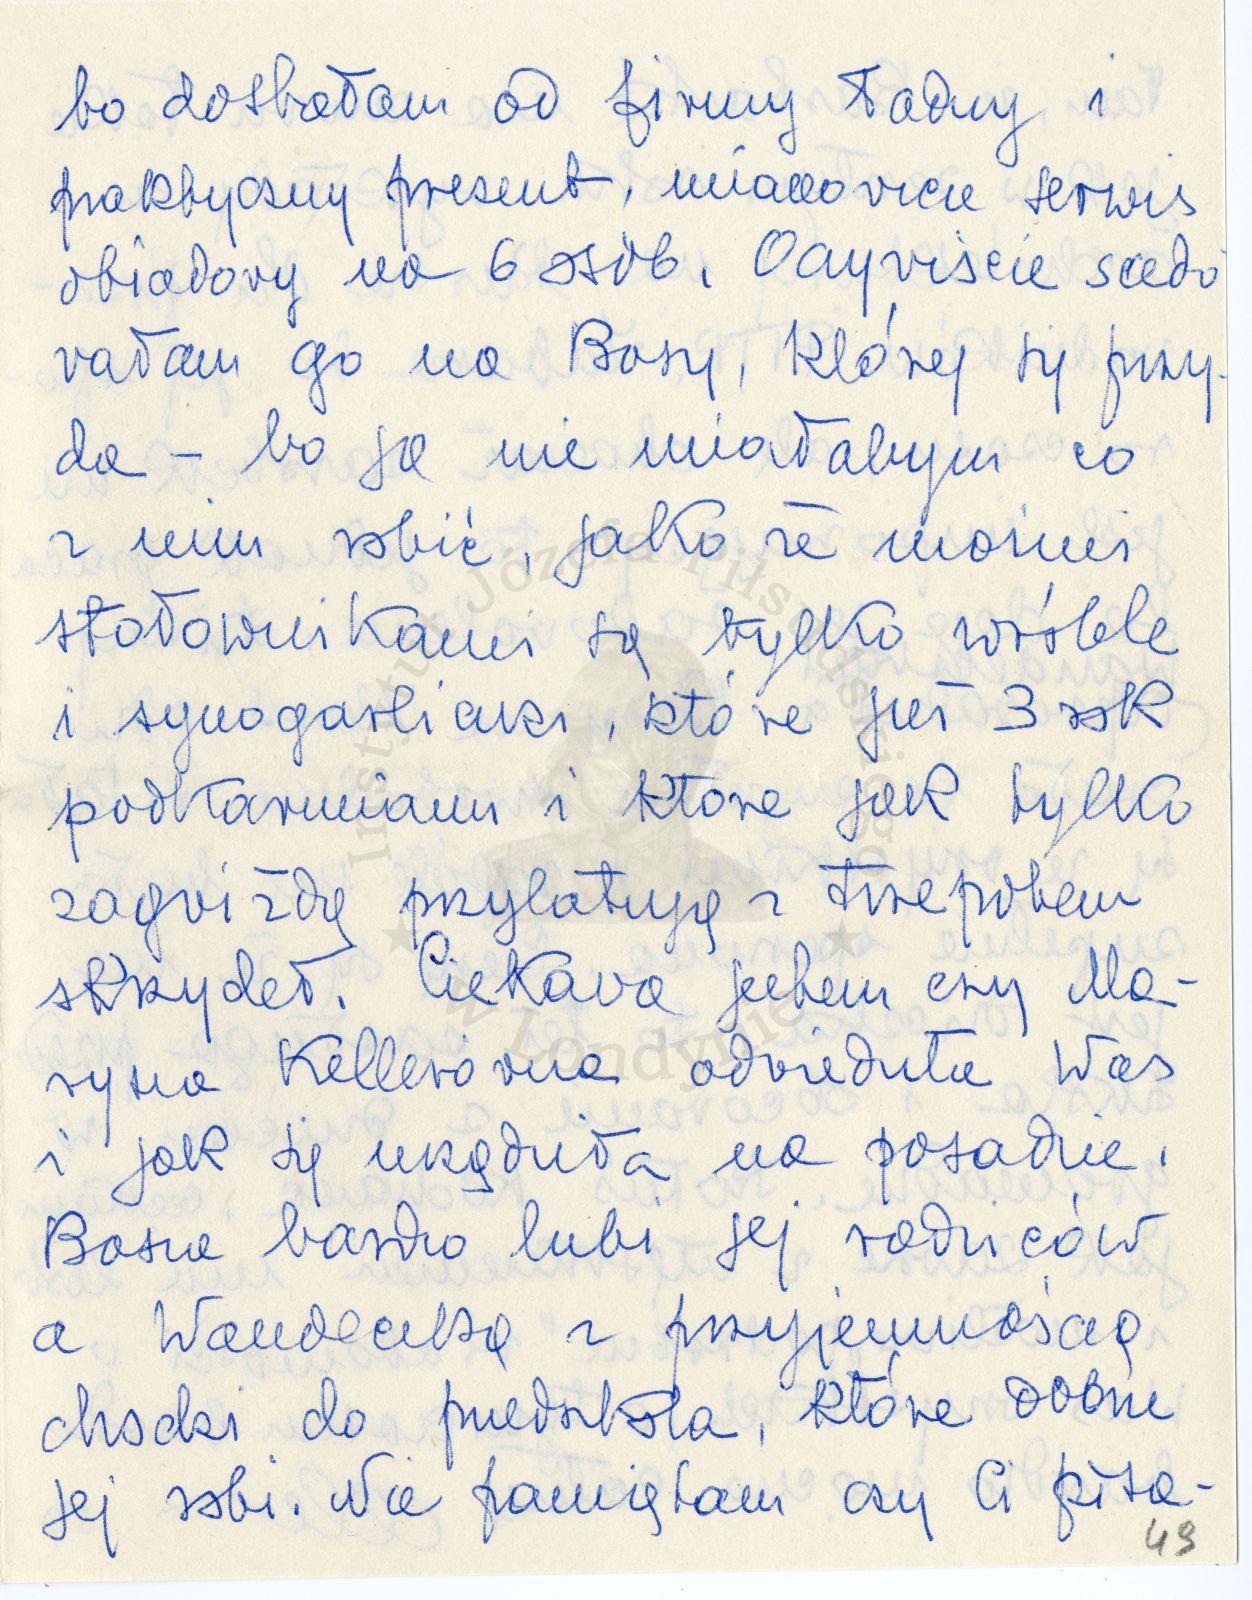 bo dostałam od firmy ładny i
praktyczny prezent, mianowicie serwis
obiadowy na 6 osób. Oczywiście scedo
wałam go na Basię, której się przy-
da – bo ja nie miałabym co
z nim robić, jako że moimi
stołownikami są tylko wróble
i synogarliczki, które już 3 rok
podkarmiam i które jak tylko
zagwiżdżę przylatują z trzepotem
skrzydeł. Ciekawa jestem czy Ma-
ryna Kellerówna odwiedziła Was
i jak się urządziła na posadzie.
Basia bardzo lubi jej rodziców
a Wandeczka z przyjemnością
chodzi do przedszkola, które dobrze
jej robi. Nie pamiętam czy Ci pisa-
49
Instytut Józefa Piłsudskiego
w Londynie